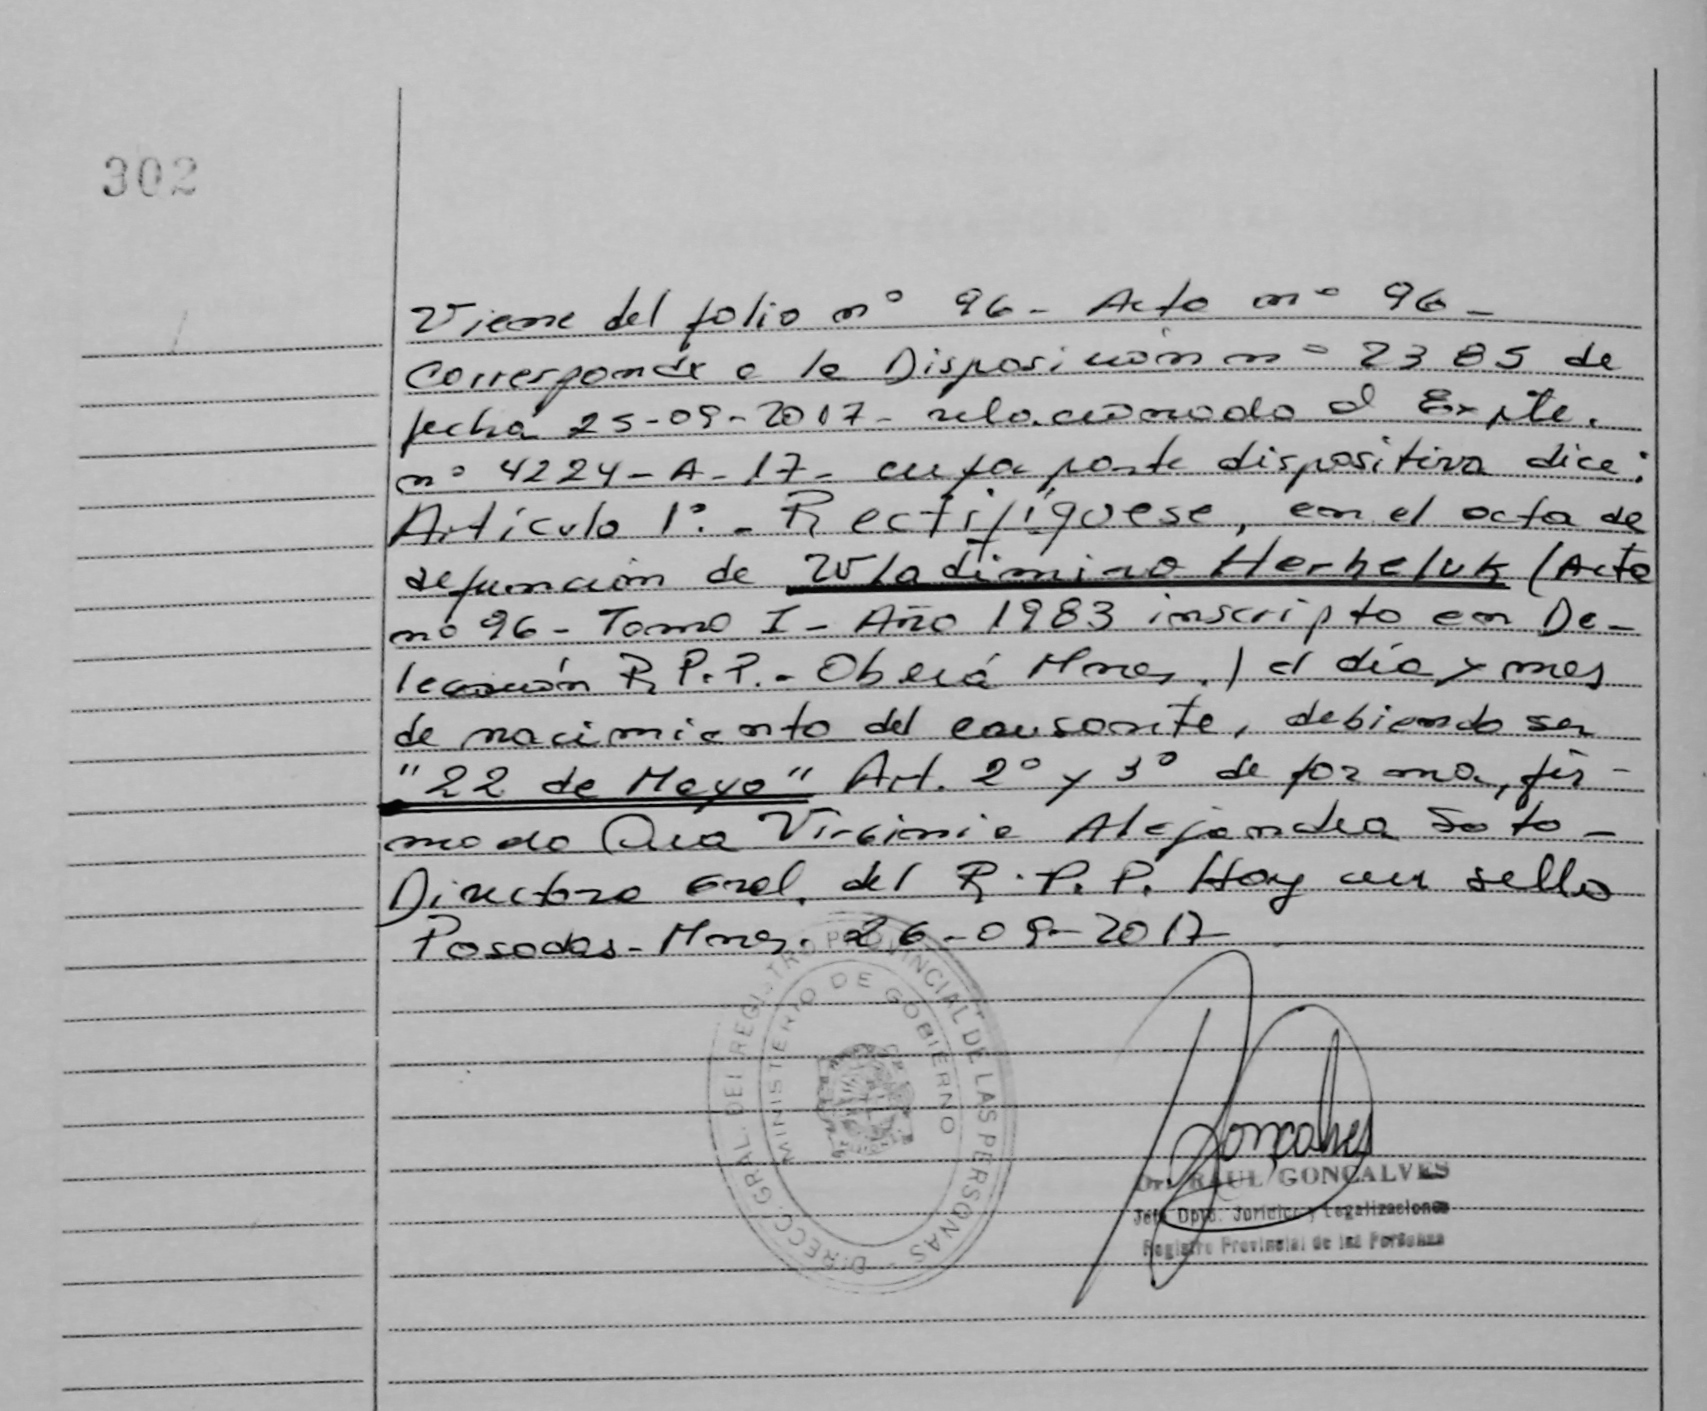 302
Viene del folio nº 96 - Acta nº 96 -
Corresponde a la Disposición nº 2385 de
fecha 25-09-2017 - relacionado al Expte.
nº 4224-A-17- cuya parte dispositiva dice:
Artículo 1º.- Rectifíquese, en el acta de
defunción de Wladimiro Herheluk (Acta
nº 96 - Tomo I - Año 1983 inscripto en De-
legación R.P.P. - Oberá Mnes.) el día y mes
de nacimiento del causante, debiendo ser
"22 de Mayo" Art. 2º y 3º de forma, fir-
mado Dra Virginia Alejandra Soto -
Directora Gral. del R.P.P. Hay un sello
Posadas - Mnes. 26-09-2017
DIRECC. GRAL. DEL REGISTRO PROVINCIAL DE LAS PERSONAS
MINISTERIO DE GOBIERNO
Gonçalves
Dr. RAUL GONÇALVES
Jefe Dpto. Jurídico y Legalizaciones
Registro Provincial de las Personas